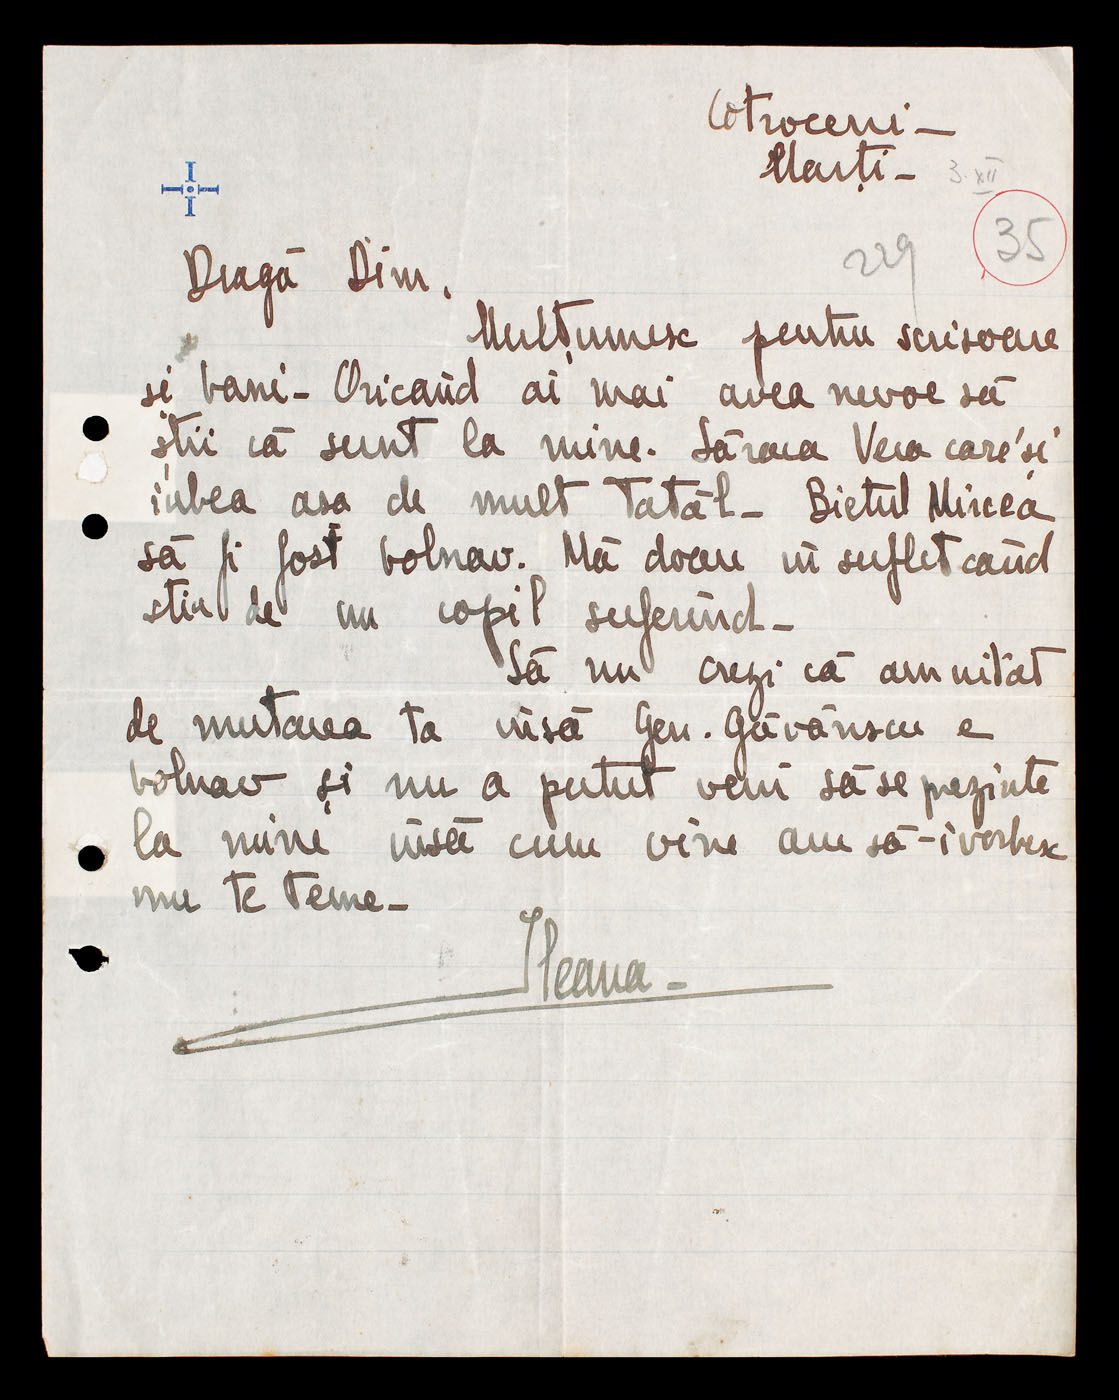 Cotroceni –
Marți – 3. XII
35
229
Dragă Dim,
Mulțumesc pentru scrisoare
si bani – Oricând ai mai avea nevoe să
știi că sunt la mine. Săraca Vera care'si
iubea asa de mult Tatăl – Bietul Mircea
să fi fost bolnav. Mă doare în suflet când
stiu de un copil suferind –
Să nu crezi că am uitat
de mutarea ta însă Gen. Găvănscu e
bolnav și nu a putut veni să se prezinte
la mine însă cum vine am să-i vorbesc
nu te teme –
Ileana –